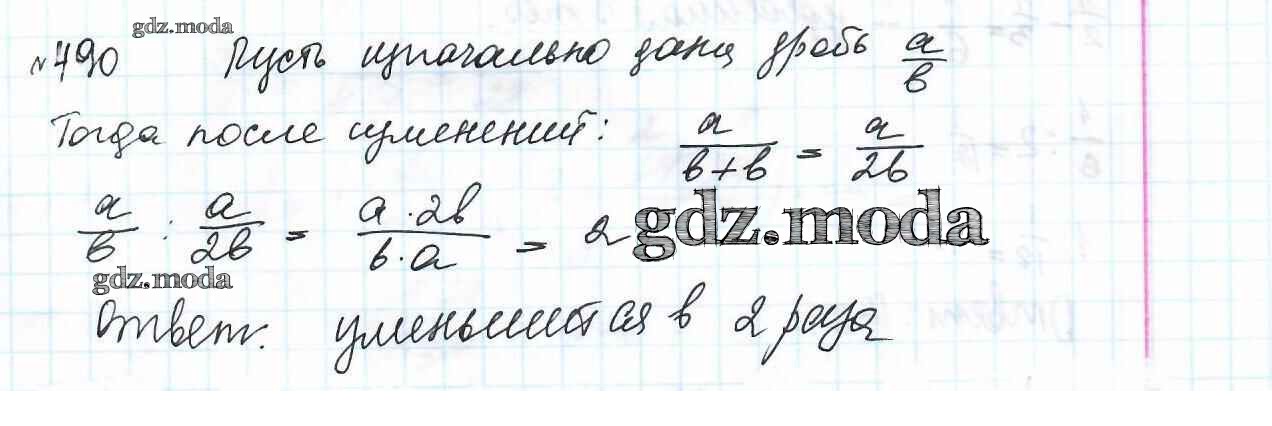 gdz.moda
№490 Пусть изначально дана дробь a/b
Тогда после изменений: a/(b+b) = a/2b
a/b : a/2b = a·2b/b·a = 2
gdz.moda
gdz.moda
Ответ: уменьшится в 2 раза